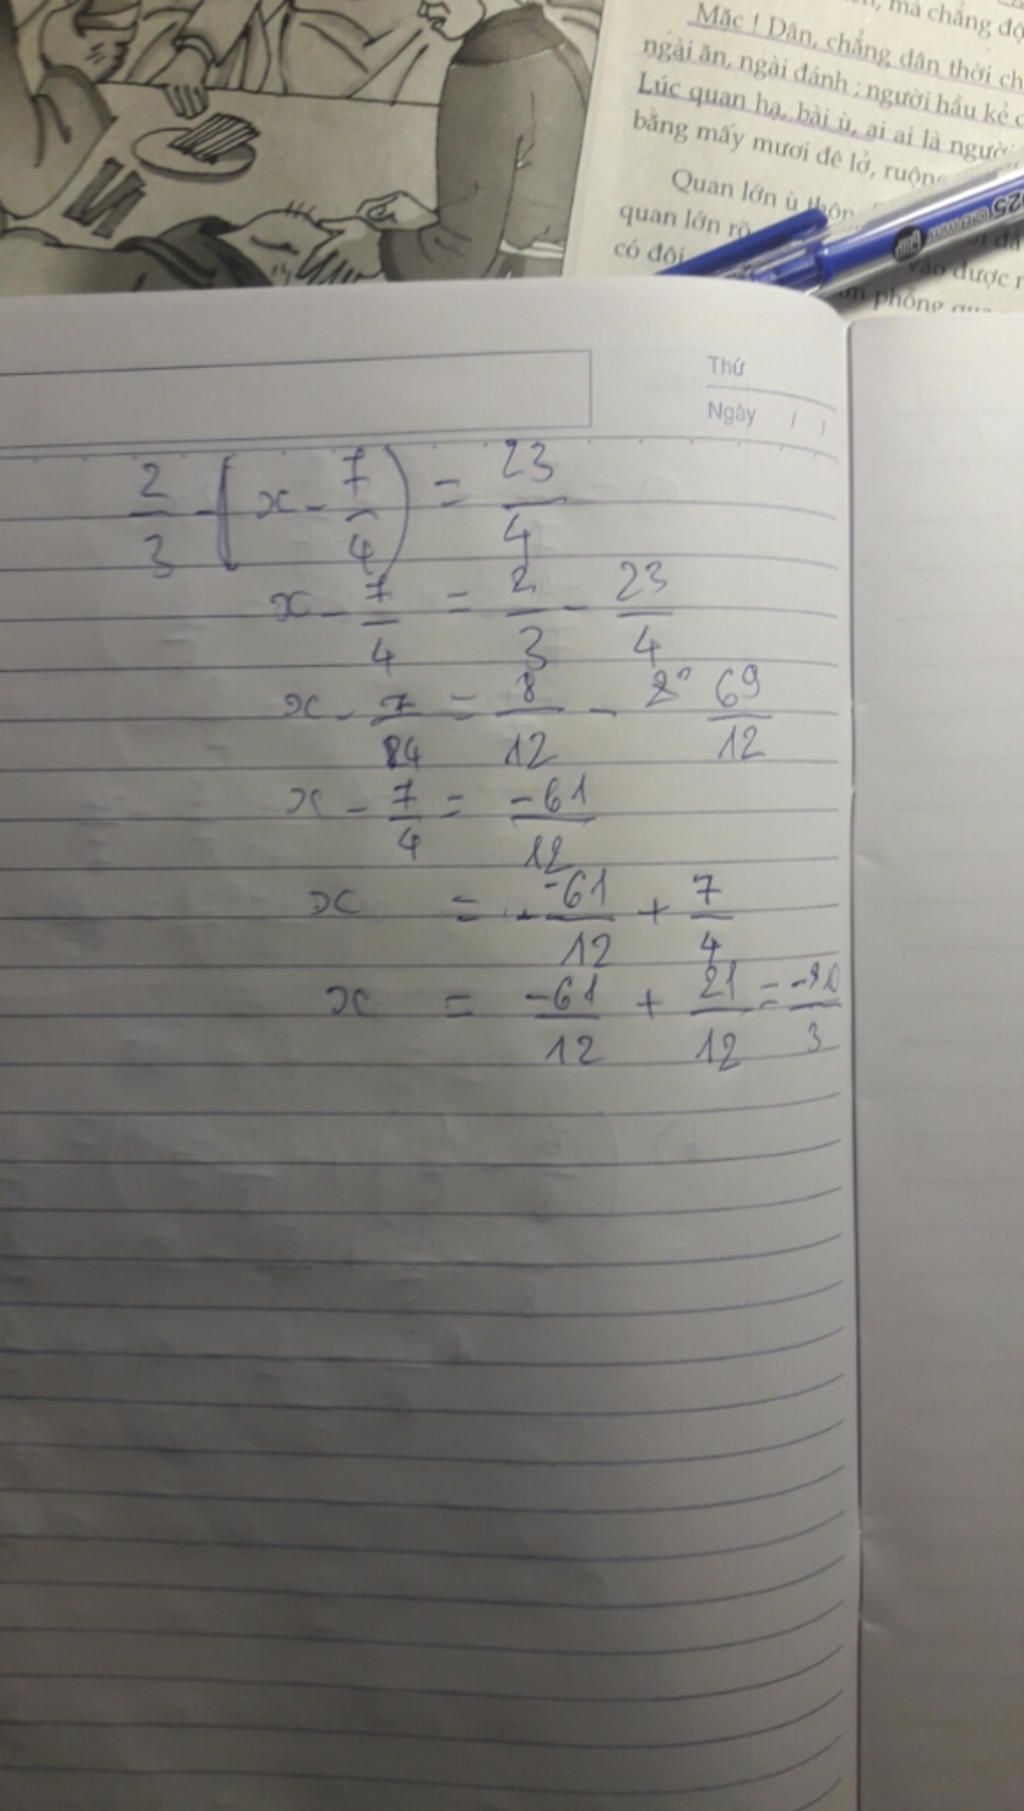 mà chẳng độ
Mặc ! Dân, chẳng dân thời ch
ngài ăn, ngài đánh ; người hầu kẻ c
Lúc quan hạ, bài ù, ai ai là người
bằng mấy mươi đê lở, ruộng
Quan lớn ù
quan lớn rõ
có đôi
được
phỗng
Thứ
Ngày / /
2/3 - (x - 7/4) = 23/4
x - 7/4 = 2/3 - 23/4
x - 7/4 = 8/12 - 69/12
x - 7/4 = -61/12
x = -61/12 + 7/4
x = -61/12 + 21/12 = -10/3